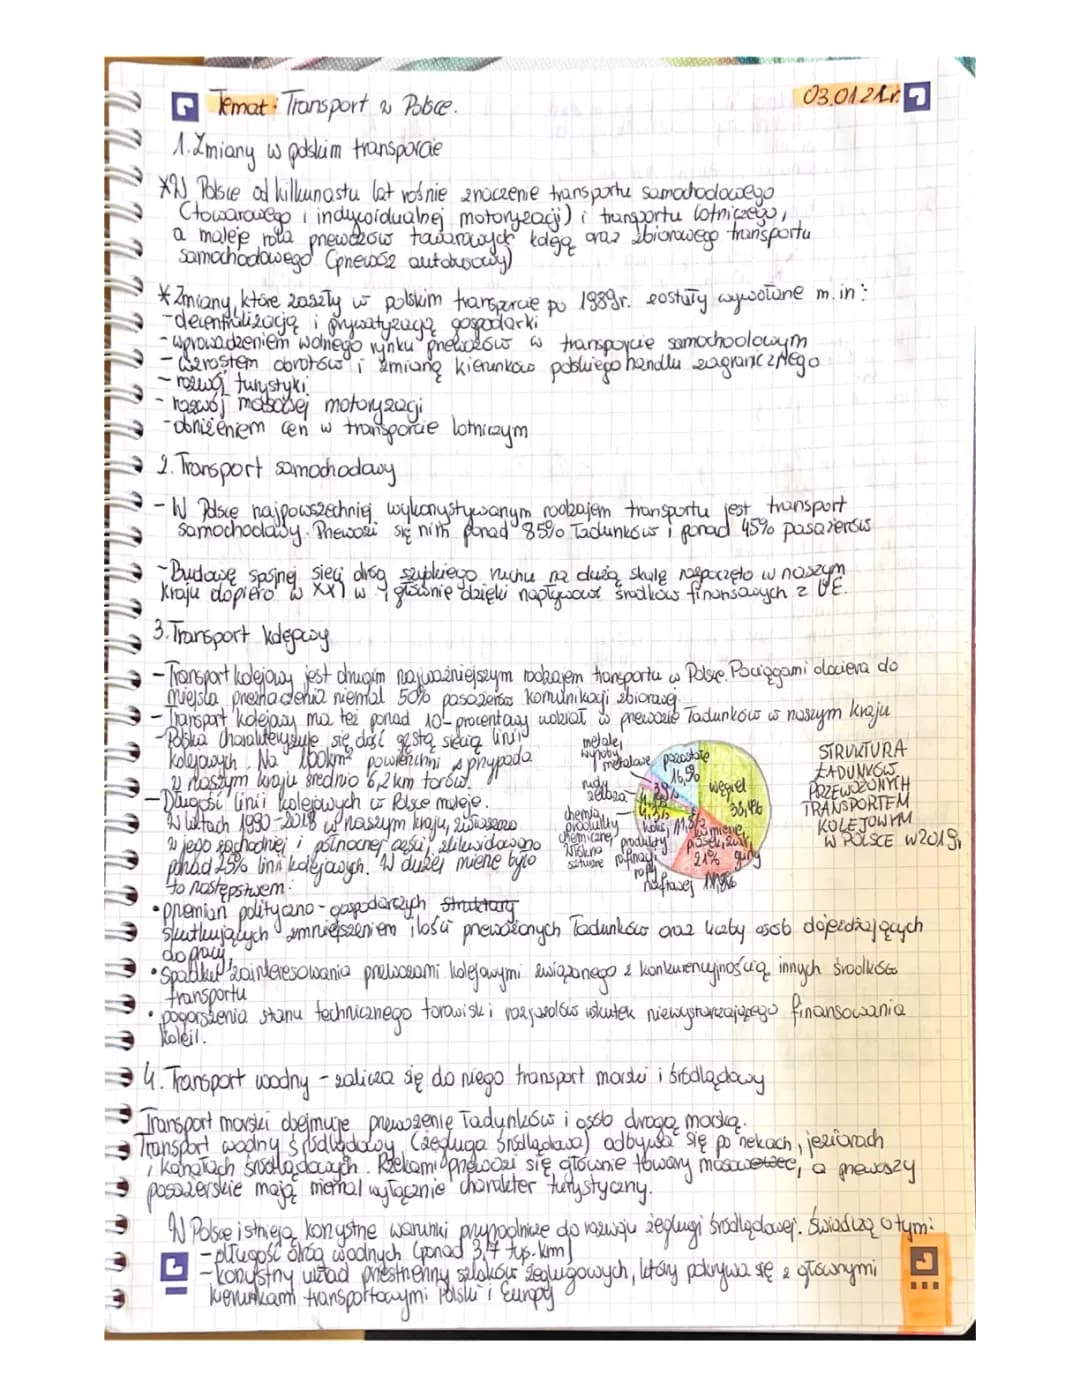 Temat: Transport w Polsce.
03.01.21r.
1. Zmiany w polskim transporcie
*W Polsce od kilkunastu lat rośnie znaczenie transportu samochodowego
(towarowego i indywidualnej motoryzacji) i transportu lotniczego,
a maleje rola przewozów towarowych koleją oraz zbiorowego transportu
samochodowego (przewóz autobusowy)
*Zmiany, które zaszły w polskim transporcie po 1989r. zostały wywołane m.in:
-decentralizacją i prywatyzacją gospodarki
-wprowadzeniem wolnego rynku przewozów w transporcie samochodowym
-wzrostem obrotów i zmianą kierunków polskiego handlu zagranicznego
-rozwój turystyki
-rozwój masowej motoryzacji
-obniżeniem cen w transporcie lotniczym
2. Transport samochodowy
- W Polsce najpowszechniej wykorzystywanym rodzajem transportu jest transport
samochodowy. Przewozi się nim ponad 85% ładunków i ponad 45% pasażerów
-Budowę spójnej sieci dróg szybkiego ruchu na dużą skalę rozpoczęto w naszym
kraju dopiero w XXI w głównie dzięki napływowi środków finansowych z UE.
3. Transport kolejowy
-Transport kolejowy jest drugim najważniejszym rodzajem transportu w Polsce. Pociągami dociera do
miejsca przeznaczenia niemal 50% pasażerów komunikacji zbiorowej.
-Transport kolejowy ma też ponad 10-procentowy udział w przewozie ładunków w naszym kraju
-Polska charakteryzuje się dość gęstą siecią linii
kolejowych. Na 100km² powierzchni przypada
w naszym kraju średnio 6,2km torów.
-Długość linii kolejowych w Polsce maleje.
W latach 1990-2018 w naszym kraju, zwłaszcza
w jego zachodniej i północnej części, zlikwidowano
ponad 25% linii kolejowych. W dużej mierze było
to następstwem:
metale, wyroby metalowe 3,9%
pozostałe 16,5%
węgiel
rudy żelaza
chemia, produkty chemiczne, włókno sztuczne 4,3%
koks, produkty rafinacji ropy naftowej
kamienie, piasek, żwir, gliny 21%
STRUKTURA
ŁADUNKÓW
PRZEWOŻONYCH
TRANSPORTEM
KOLEJOWYM
W POLSCE W 2019.
•przemian polityczno-gospodarczych struktury
skutkujących zmniejszeniem ilości przewożonych ładunków oraz liczby osób dojeżdżających
do pracy,
•spadku zainteresowania przewozami kolejowymi związanego z konkurencyjnością innych środków
transportu
•pogorszenia stanu technicznego torowisk i rozjazdów wskutek niewystarczającego finansowania
kolei.
4. Transport wodny - zalicza się do niego transport morski i śródlądowy
Transport morski obejmuje przewożenie ładunków i osób drogą morską.
Transport wodny śródlądowy (żegluga śródlądowa) odbywa się po rzekach, jeziorach
i kanałach śródlądowych. Rzekami przewozi się głównie towary masowe, a przewozy
pasażerskie mają niemal wyłącznie charakter turystyczny.
W Polsce istnieją korzystne warunki przyrodnicze do rozwoju żeglugi śródlądowej. Świadczą o tym:
-długość dróg wodnych (ponad 3,7 tys. km)
-korzystny układ przestrzenny szlaków żeglugowych, który pokrywa się z głównymi
kierunkami transportowymi Polski i Europy